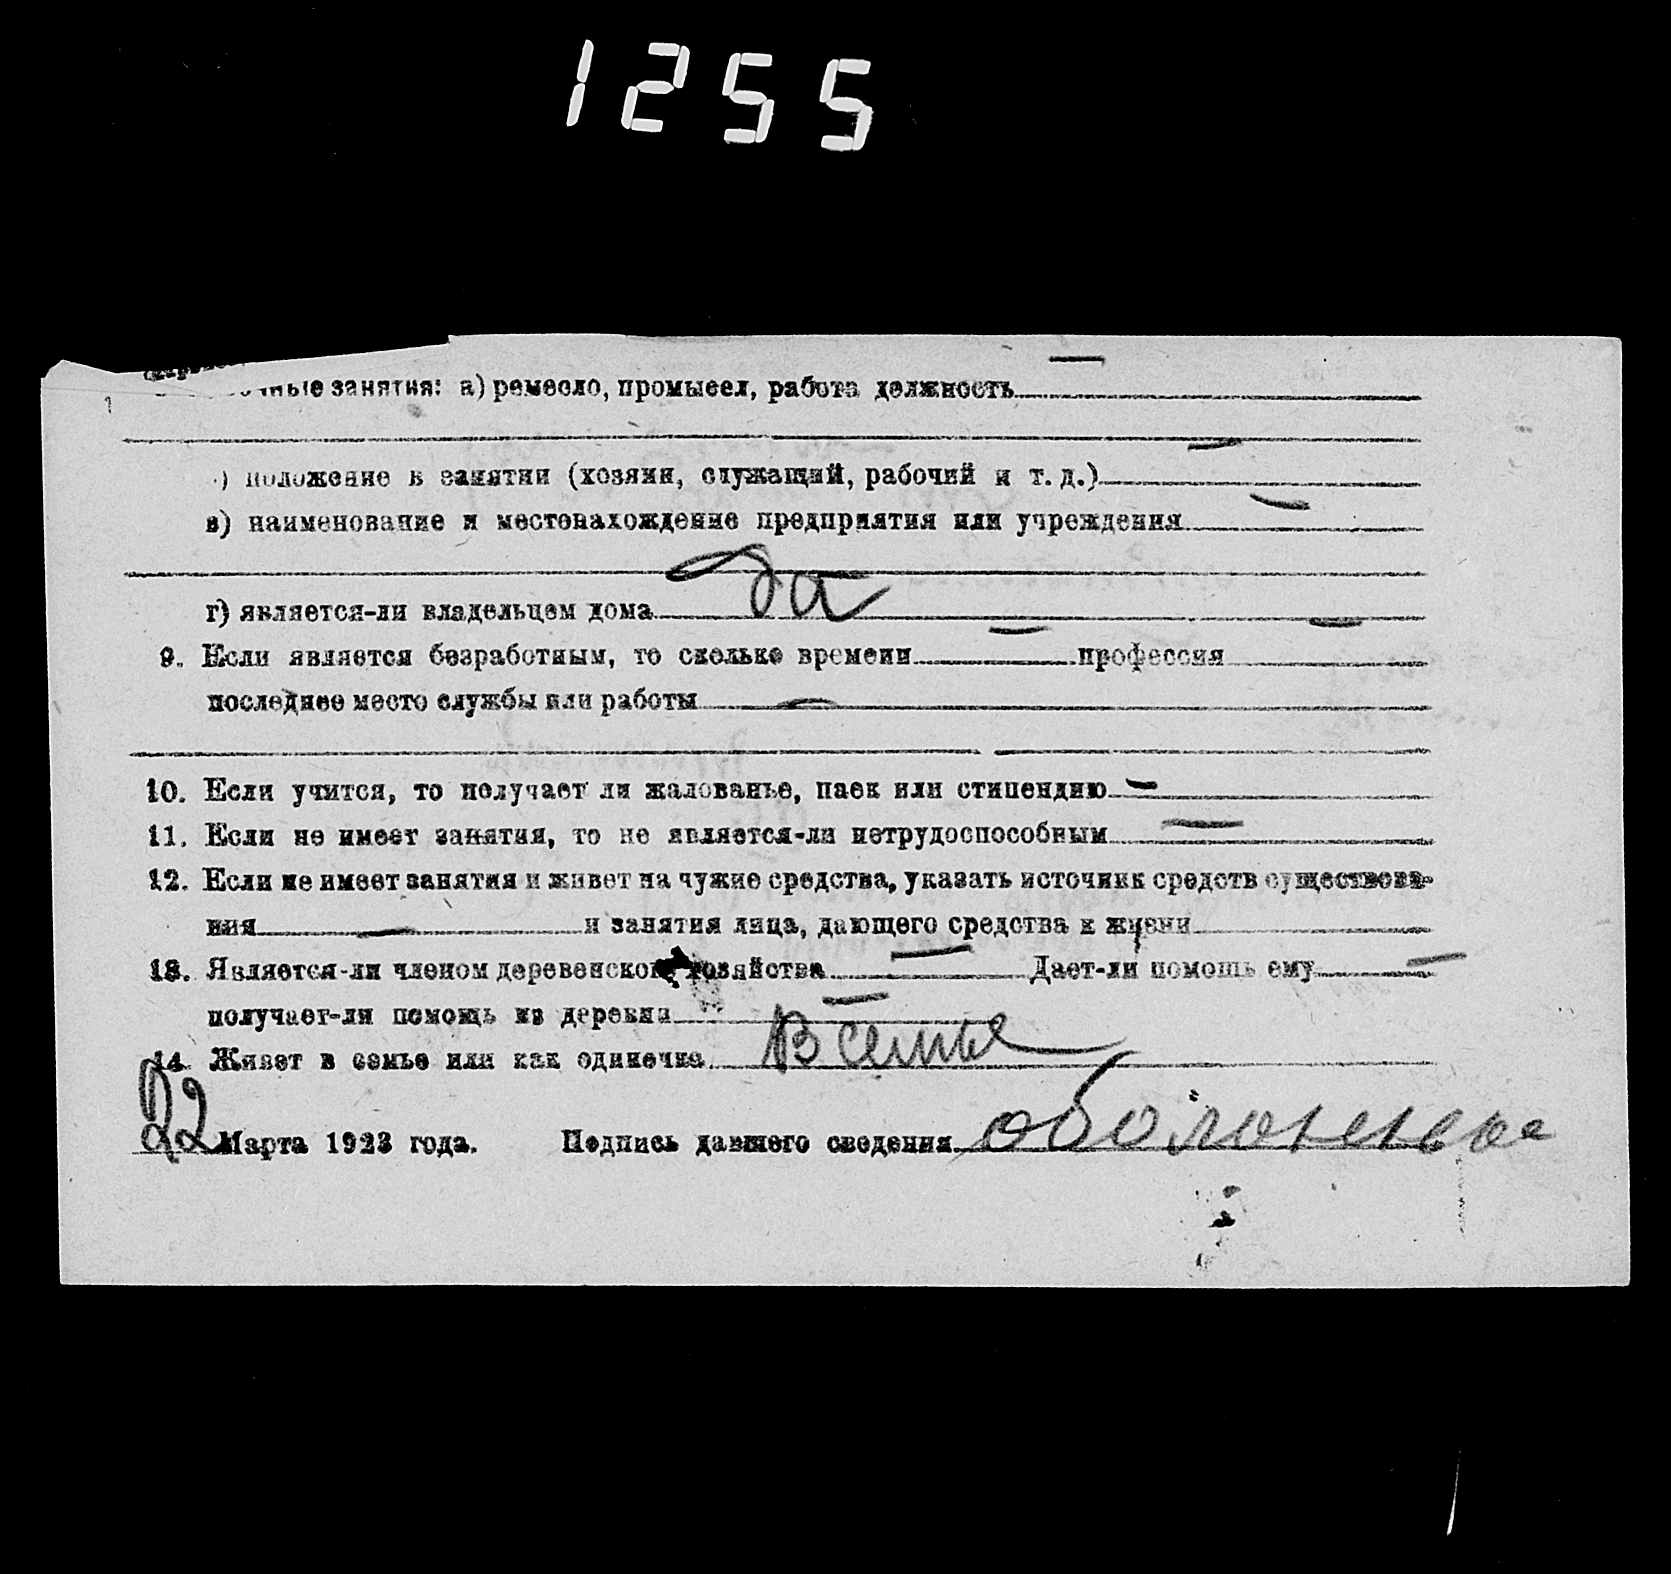 1255
занятия: а) ремесло, промысел, работа должность —
) положение в занятии (хозяин, служащий, рабочий и т. д.) —
в) наименование и местонахождение предприятия или учреждения —
г) является-ли владельцем дома Да
9. Если является безработным, то сколько времени — профессия —
последнее место службы или работы —
10. Если учится, то получает ли жалованье, паек или стипендию —
11. Если не имеет занятия, то не является-ли нетрудоспособным —
12. Если не имеет занятия и живет на чужие средства, указать источник средств существова-
ния — и занятия лица, дающего средства к жизни
13. Является-ли членом деревенского хозяйства — Дает-ли помощь ему —
получает-ли помощь из деревни —
14. Живет в семье или как одиночка В семье
22 Марта 1923 года. Подпись давшего сведения